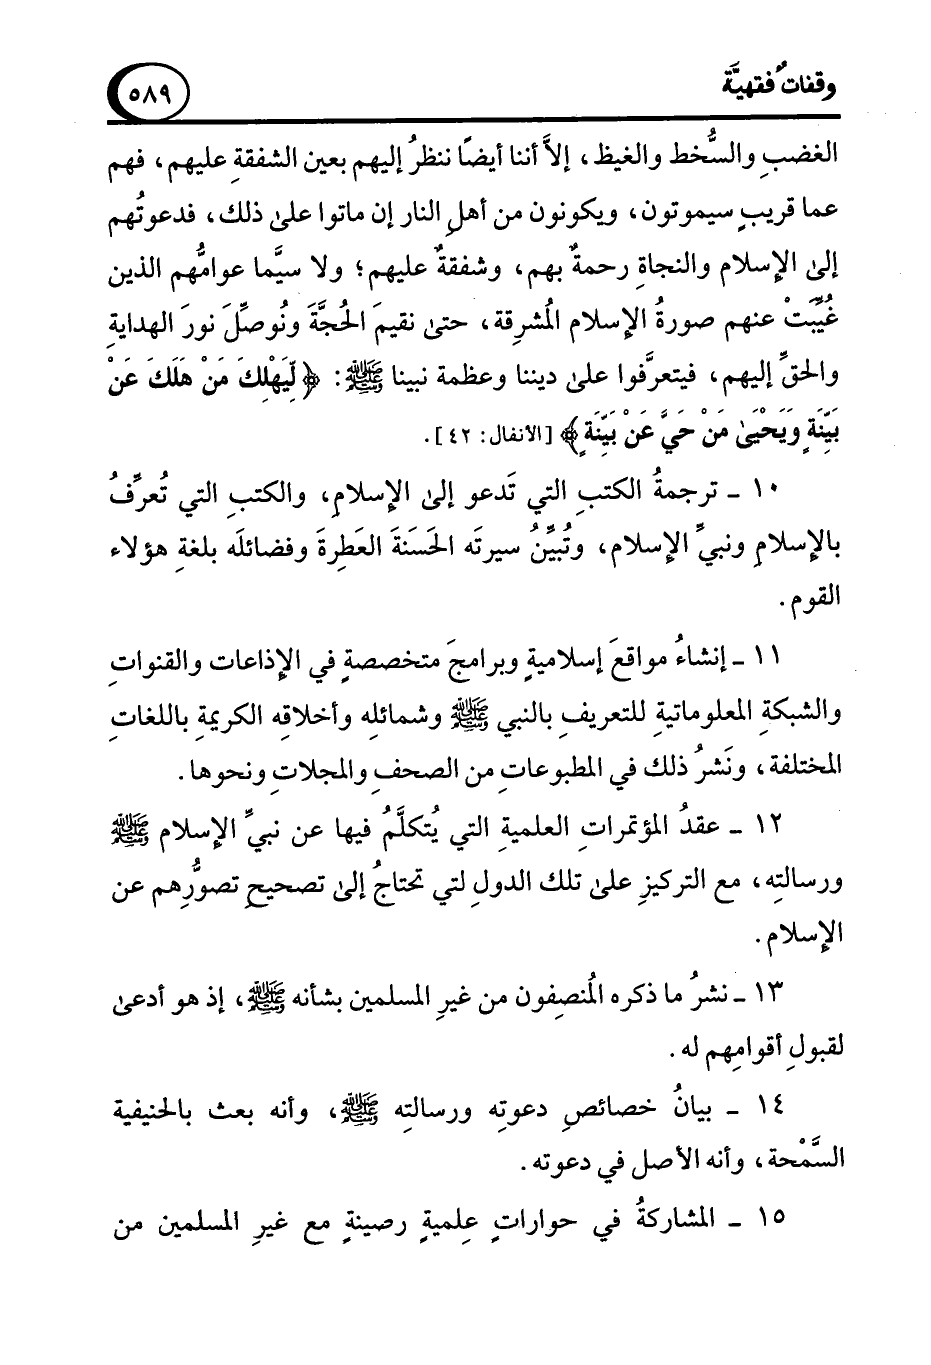 وقفاتٌ فقهيَّة
٥٨٩
الغضبِ والسُّخط والغيظ، إلاَّ أننا أيضًا ننظرُ إليهم بعين الشفقةِ عليهم، فهم
عما قريبٍ سيموتون، ويكونون من أهلِ النار إن ماتوا علىٰ ذلك، فدعوتُهم
إلىٰ الإسلام والنجاةِ رحمةٌ بهم، وشفقةٌ عليهم؛ ولا سيَّما عوامُّهم الذين
غُيِّبَتْ عنهم صورةُ الإسلام المُشرقة، حتىٰ نقيمَ الحُجَّةَ ونُوصِّلَ نورَ الهدايةِ
والحقِّ إليهم، فيتعرَّفوا علىٰ ديننا وعظمة نبينا ﷺ: ﴿لِّيَهْلِكَ مَنْ هَلَكَ عَنْ
بَيِّنَةٍ وَيَحْيَىٰ مَنْ حَيَّ عَنْ بَيِّنَةٍ﴾ [الأنفال: ٤٢].
١٠ ـ ترجمةُ الكتبِ التي تَدعو إلىٰ الإسلامِ، والكتبِ التي تُعرِّفُ
بالإسلامِ ونبيِّ الإسلام، وتُبيِّنُ سيرتَه الحَسَنةَ العَطِرةَ وفضائلَه بلغةِ هؤلاء
القوم.
١١ ـ إنشاءُ مواقعَ إسلاميةٍ وبرامجَ متخصصةٍ في الإذاعات والقنواتِ
والشبكةِ المعلوماتيةِ للتعريفِ بالنبي ﷺ وشمائله وأخلاقه الكريمةِ باللغاتِ
المختلفة، ونَشرُ ذلك في المطبوعاتِ من الصحفِ والمجلاتِ ونحوها.
١٢ ـ عقدُ المؤتمراتِ العلميةِ التي يُتكلَّمُ فيها عن نبيِّ الإسلام ﷺ
ورسالتِه، مع التركيزِ علىٰ تلك الدولِ لتي تحتاجُ إلىٰ تصحيحِ تصوُّرِهم عن
الإسلام.
١٣ ـ نشرُ ما ذكره المُنصِفون من غيرِ المسلمين بشأنه ﷺ، إذ هو أدعىٰ
لقبولِ أقوامِهم له.
١٤ ـ بيانُ خصائصِ دعوتِه ورسالتِه ﷺ، وأنه بعث بالحنيفية
السَّمْحة، وأنه الأصل في دعوته.
١٥ ـ المشاركةُ في حواراتٍ عِلميةٍ رصينةٍ مع غيرِ المسلمين من